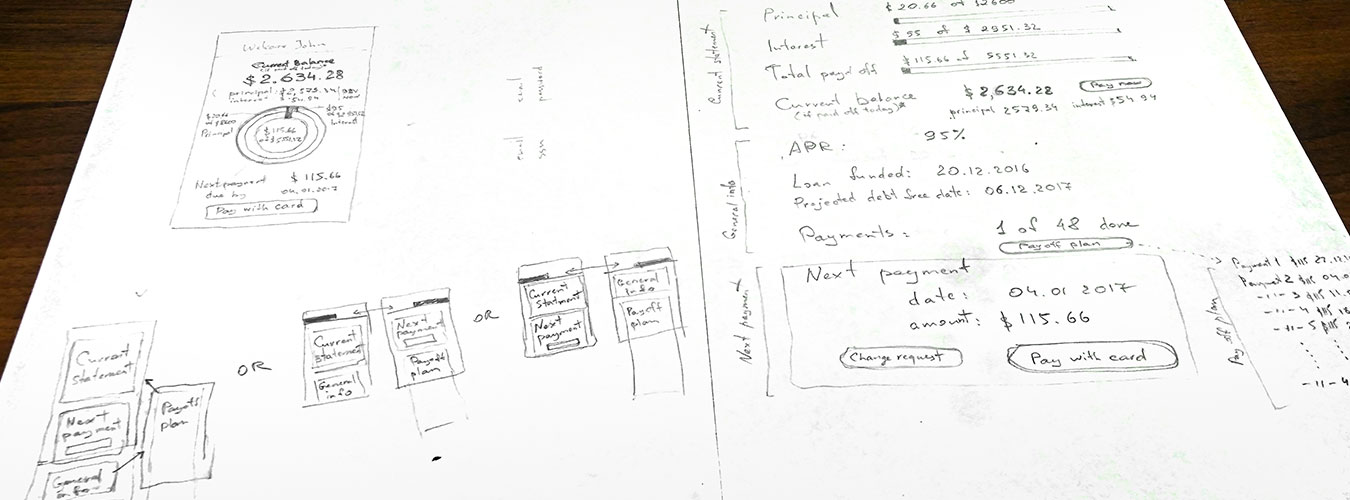 Welcome John
Current Balance
(if paid off today)*
$2,634.28
principal: $2,579.34
interest $54.94
Pay now
$20.66
of $2600
Principal
$95
of $2951.32
Interest
$115.66
of $5551.32
Next payment
due by
$115.66
04.01.2017
Pay with card
email
password
email
ssn
Current statement
Principal
$20.66 of $2600
Interest
$95 of $2951.32
Total payd off
$115.66 of 5551.32
Current balance
(if paid off today)*
$2,634.28
Pay now
principal 2579.34 interest $54.94
General info
APR:
95%
Loan funded: 20.12.2016
Projected debt free date: 06.12.2017
Payments:
1 of 48 done
Payoff plan
Next payment
Next payment
date: 04.01 2017
amount: $115.66
Change request
Pay with card
Pay off plan
Payment 1 $115 27.12
Payment 2 $115 04.0
-11- 3 $115 11.
-11- 4 $115
-11- 5 $115
-11- 4
Current
statement
Next
payment
General
info
Payoff
plan
OR
Current
statement
General
info
Next
payment
Payoff
plan
OR
Current
statment
Next
payment
General
info
Payoff
plan